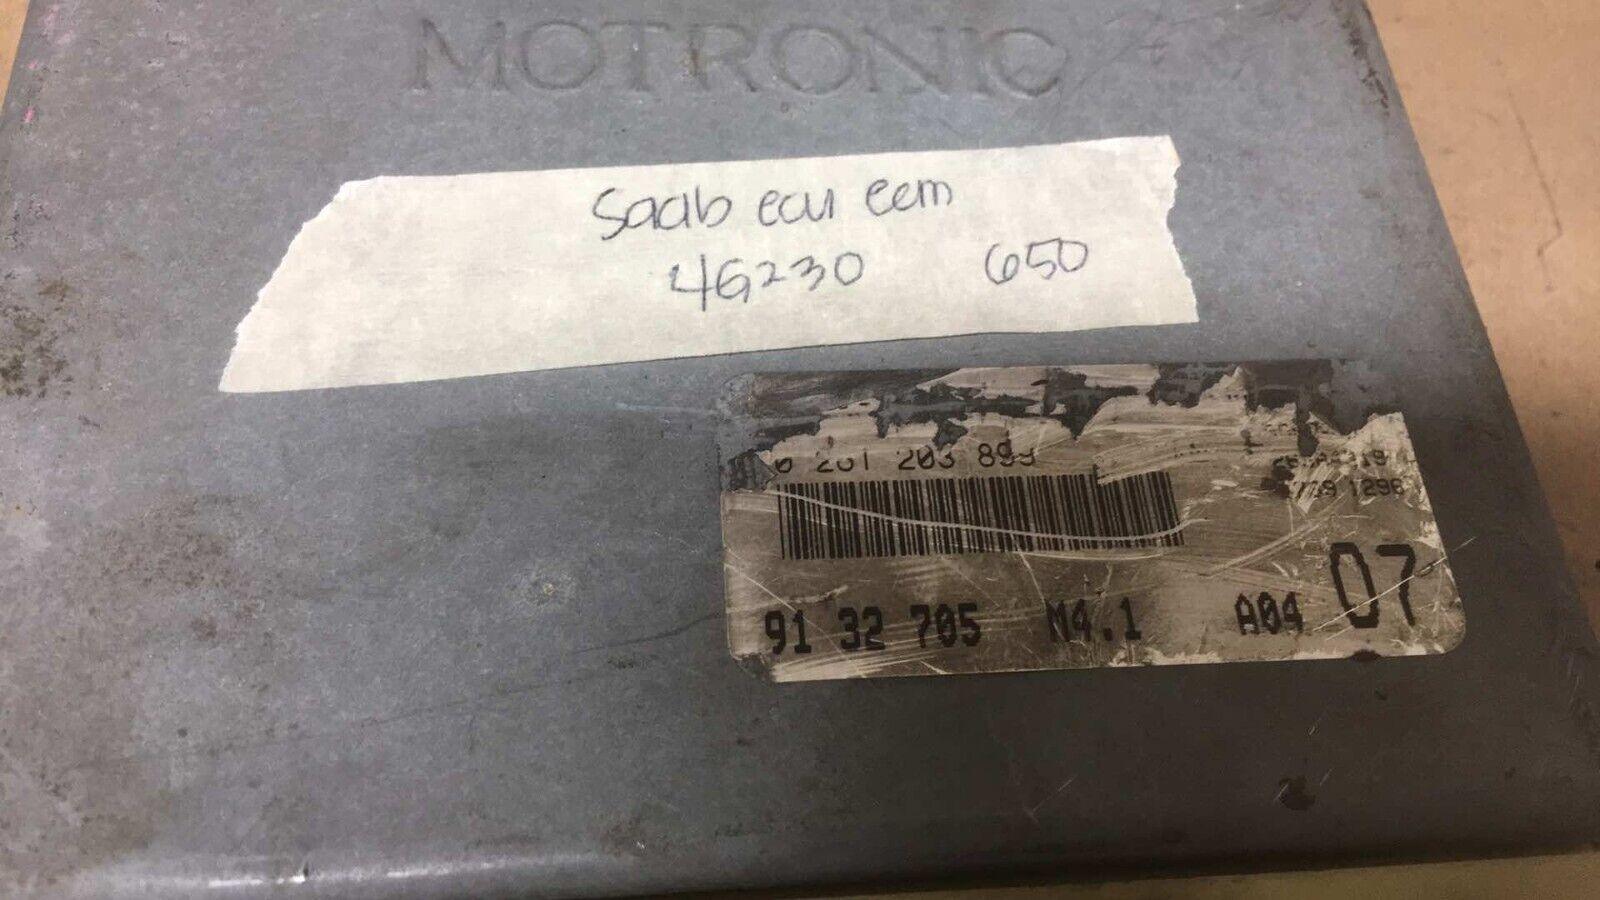 MOTRONIC
Saab ecu ecm
4G230 650
0 261 203 899
1296
91 32 705 M4.1 A04 07